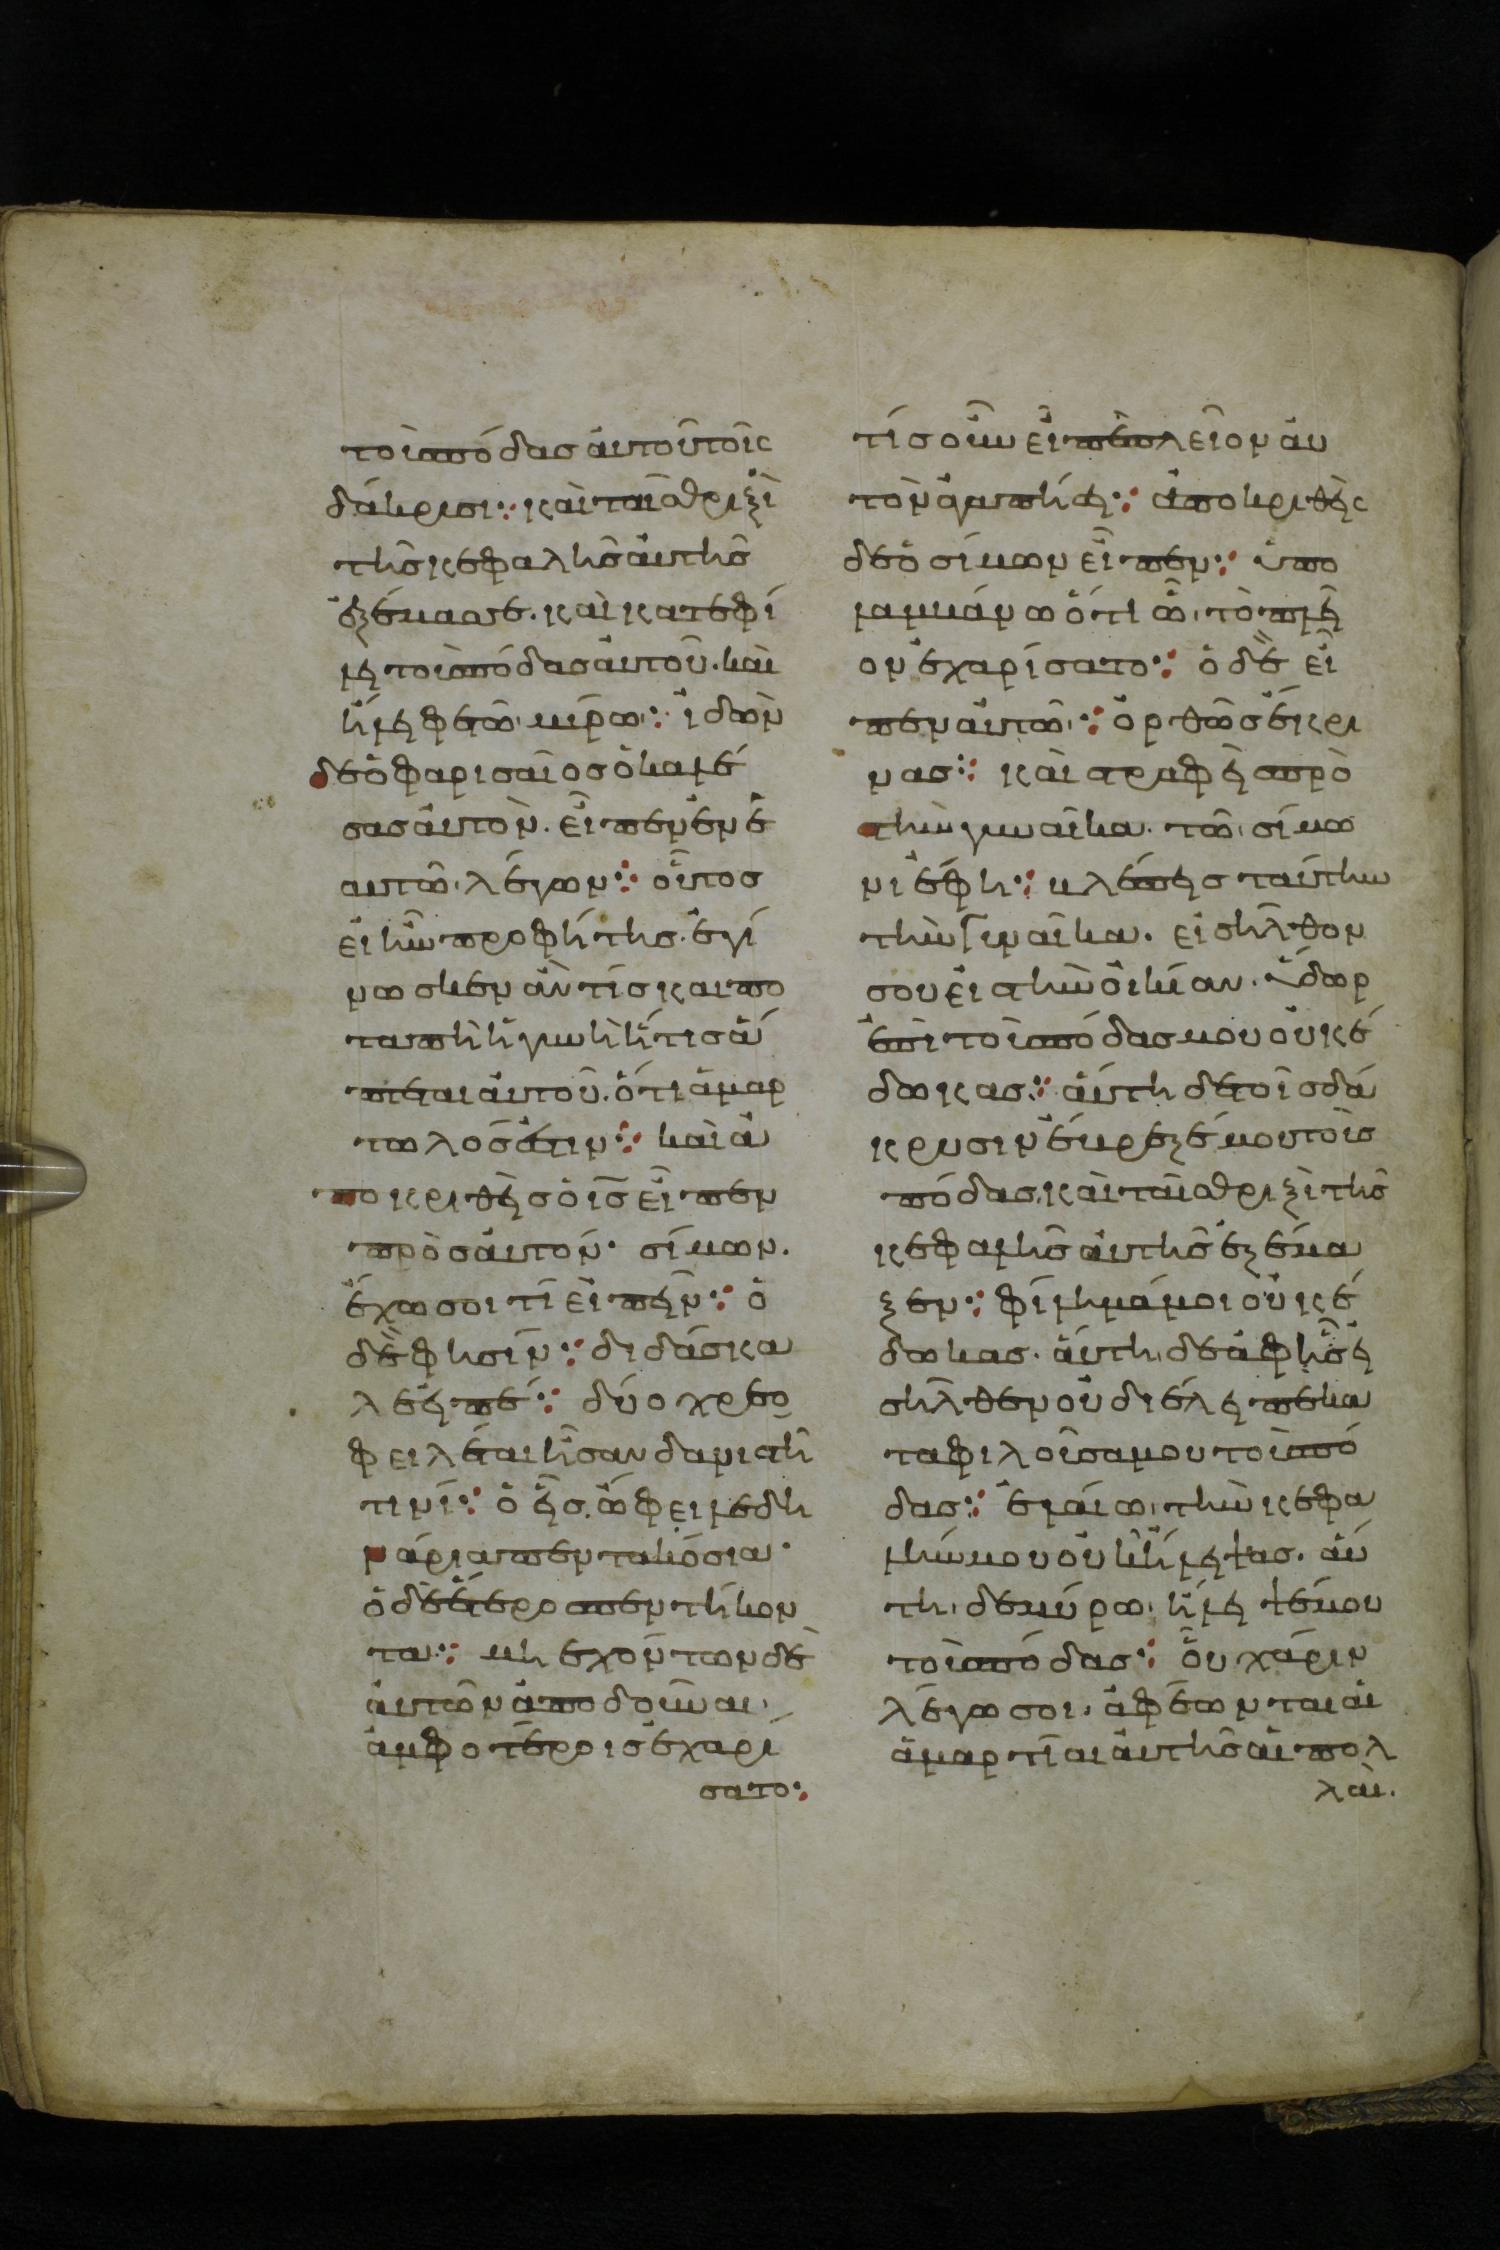 τοὺσ πόδασ ἀυτοῦ τοῖς
δάκρυσι· καὶ ταῖσ θριξὶ
τῆσ κεφαλῆσ ἀυτῆσ
ἐξέμασσε. καὶ κατεφί
λει τοὺσ πόδασ ἀυτοῦ. καὶ
ἤλειφε τῶ μύρω· ἰδὼν
δὲ ὁ φαρισαῖοσ ὁ καλέ
σασ ἀυτὸν. εἶπεν ἐν ἑ
αυτῶ λέγων· οὗτοσ
εἰ ἦν προφήτησ. ἐγί
νωσκεν ἂν τίσ και πο
ταπὴ ἡ γυνὴ ἥτισ ἅ
πτεται ἀυτοῦ. ὅτι ἁμαρ
τωλόσ ἐστιν· καὶ ἀ
ποκριθεὶσ ὁ ἰσ εἶπεν
πρὸσ ἀυτον· σίμων.
ἔχω σοι τί εἰπεῖν· ὁ
δὲ φησίν· διδάσκα
λε εἰπέ· δύο χρεο
φειλέται ἦσαν δανιστῆ
τινί· ὁ εἷσ ὤφειλε δη
νάρια πεντακόσια·
ὁ δὲ ἕτεροσ πεντήκον
τα· μὴ εχόντων δὲ
ἀυτῶν ἀποδοῦναι.
ἀμφοτέροισ ἐχαρί
σατο·
τίσ οὖν εἰπὲ πλεῖον ἀυ
τὸν ἀγαπήσει· ἀποκριθεὶς
δὲ ὁ σίμων εἶπεν· ὑπο
λαμβάνω ὅτι ῶ τὸ πλεῖ
ον ἐχαρίσατο· ὁ δὲ εἶ
πεν ἀυτῶ· ὀρθῶσ ἔκρι
νας· καὶ στραφεὶσ πρὸ
τὴν γυναῖκα. τῶ σίμω
νι ἔφη· βλέπεισ ταύτην
τὴν γυναῖκα. εἰσῆλθον
σου εἰσ τὴν ὀικίαν. ὕδωρ
ἐπὶ τοὺσ πόδασ μου οὐκ έ
δωκασ· ἀύτη δὲ τοῖσ δά
κρυσιν ἔβρεξέ μου τοὺσ
πόδασ. καὶ ταῖσ θριξὶ τῆσ
κεφαλῆσ ἀυτῆσ ἐξέμα
ξεν· φίλημά μοι οὐκ έ
δωκασ. ἀύτη δὲ ἀφ ῆσ ἐι
σῆλθεν οὐ διέλειπε κα
ταφιλοῦσα μου τοὺσ πό
δασ· ἐλαίω τὴν κεφα
λήν μου οὐκ ἤλειψασ. ἀύ
τη δὲ μύρω ἤλειψέ μου
τοὺσ πόδασ· οὗ χάριν
λέγω σοι. ἀφέωνται ἁι
ἁμαρτίαι ἀυτῆσ ἁι πολ
λαὶ.